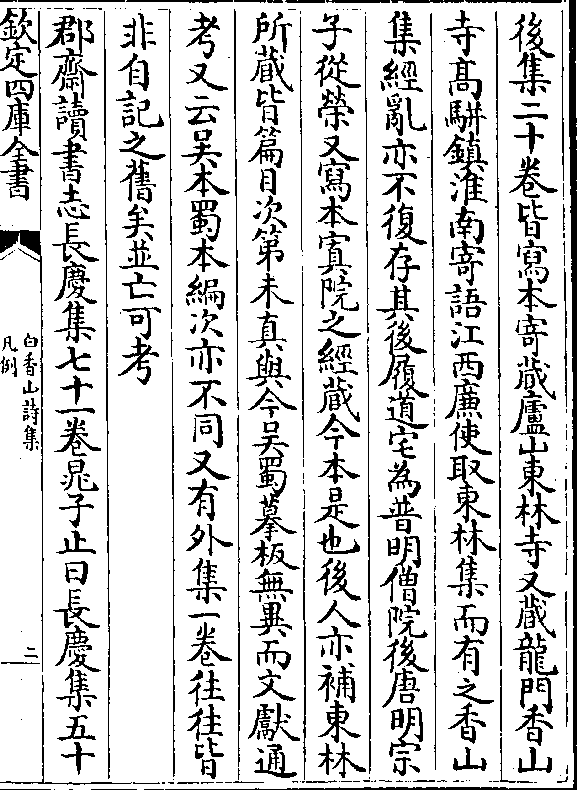 後集二十卷皆寫本寄蔵廬山東林寺又蔵龍門香山
寺髙駢鎮淮南寄語江西廉使取東林集而有之香山
集經亂亦不復存其後履道宅為普明僧院後唐明宗
子從榮又寫本寘院之經蔵今本是也後人亦補東林
所蔵皆篇目次第未真與今吳蜀摹板無異而文獻通
考又云吳本蜀本編次亦不同又有外集一卷往往皆
非自記之舊矣並亡可考
郡齋讀書志長慶集七十一卷晁子止曰長慶集五十
欽定四庫全書
白香山詩集
凡例
二